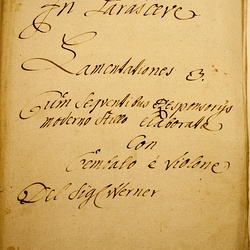 In Parasceve
Lamentationes 3.
Cum sequentibus Responsorijs
moderno stilo elaboratæ
Con
Cembalo è Violone
Del Sig Werner